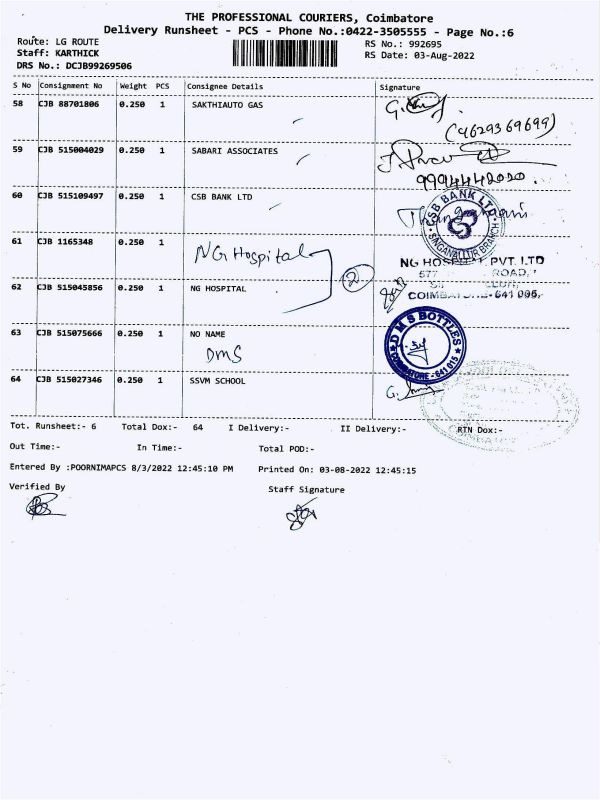 THE PROFESSIONAL COURIERS, Coimbatore
Delivery Runsheet - PCS - Phone No.:0422-3505555 - Page No.:6
Route: LG ROUTE
Staff: KARTHICK
DRS No.: DCJB99269506
RS No.: 992695
RS Date: 03-Aug-2022
S No Consignment No Weight PCS Consignee Details Signature
58 CJB 88701806 0.250 1 SAKTHIAUTO GAS
(9629369699)
59 CJB 515004029 0.250 1 SABARI ASSOCIATES
9994442020
60 CJB 515109497 0.250 1 CSB BANK LTD
CSB BANK LTD
SINGANALLUR BRANCH
61 CJB 1165348 0.250 1
NG Hospital
2
NG HOSPITAL PVT. LTD
577 ROAD,
COIMBATORE-641 005.
62 CJB 515045856 0.250 1 NG HOSPITAL
63 CJB 515075666 0.250 1 NO NAME
DMS
DMS BOTTLES
COIMBATORE - 641 015
64 CJB 515027346 0.250 1 SSVM SCHOOL
COIMBATORE
Tot. Runsheet:- 6 Total Dox:- 64 I Delivery:- II Delivery:- RTN Dox:-
Out Time:- In Time:- Total POD:-
Entered By :POORNIMAPCS 8/3/2022 12:45:10 PM Printed On: 03-08-2022 12:45:15
Verified By Staff Signature